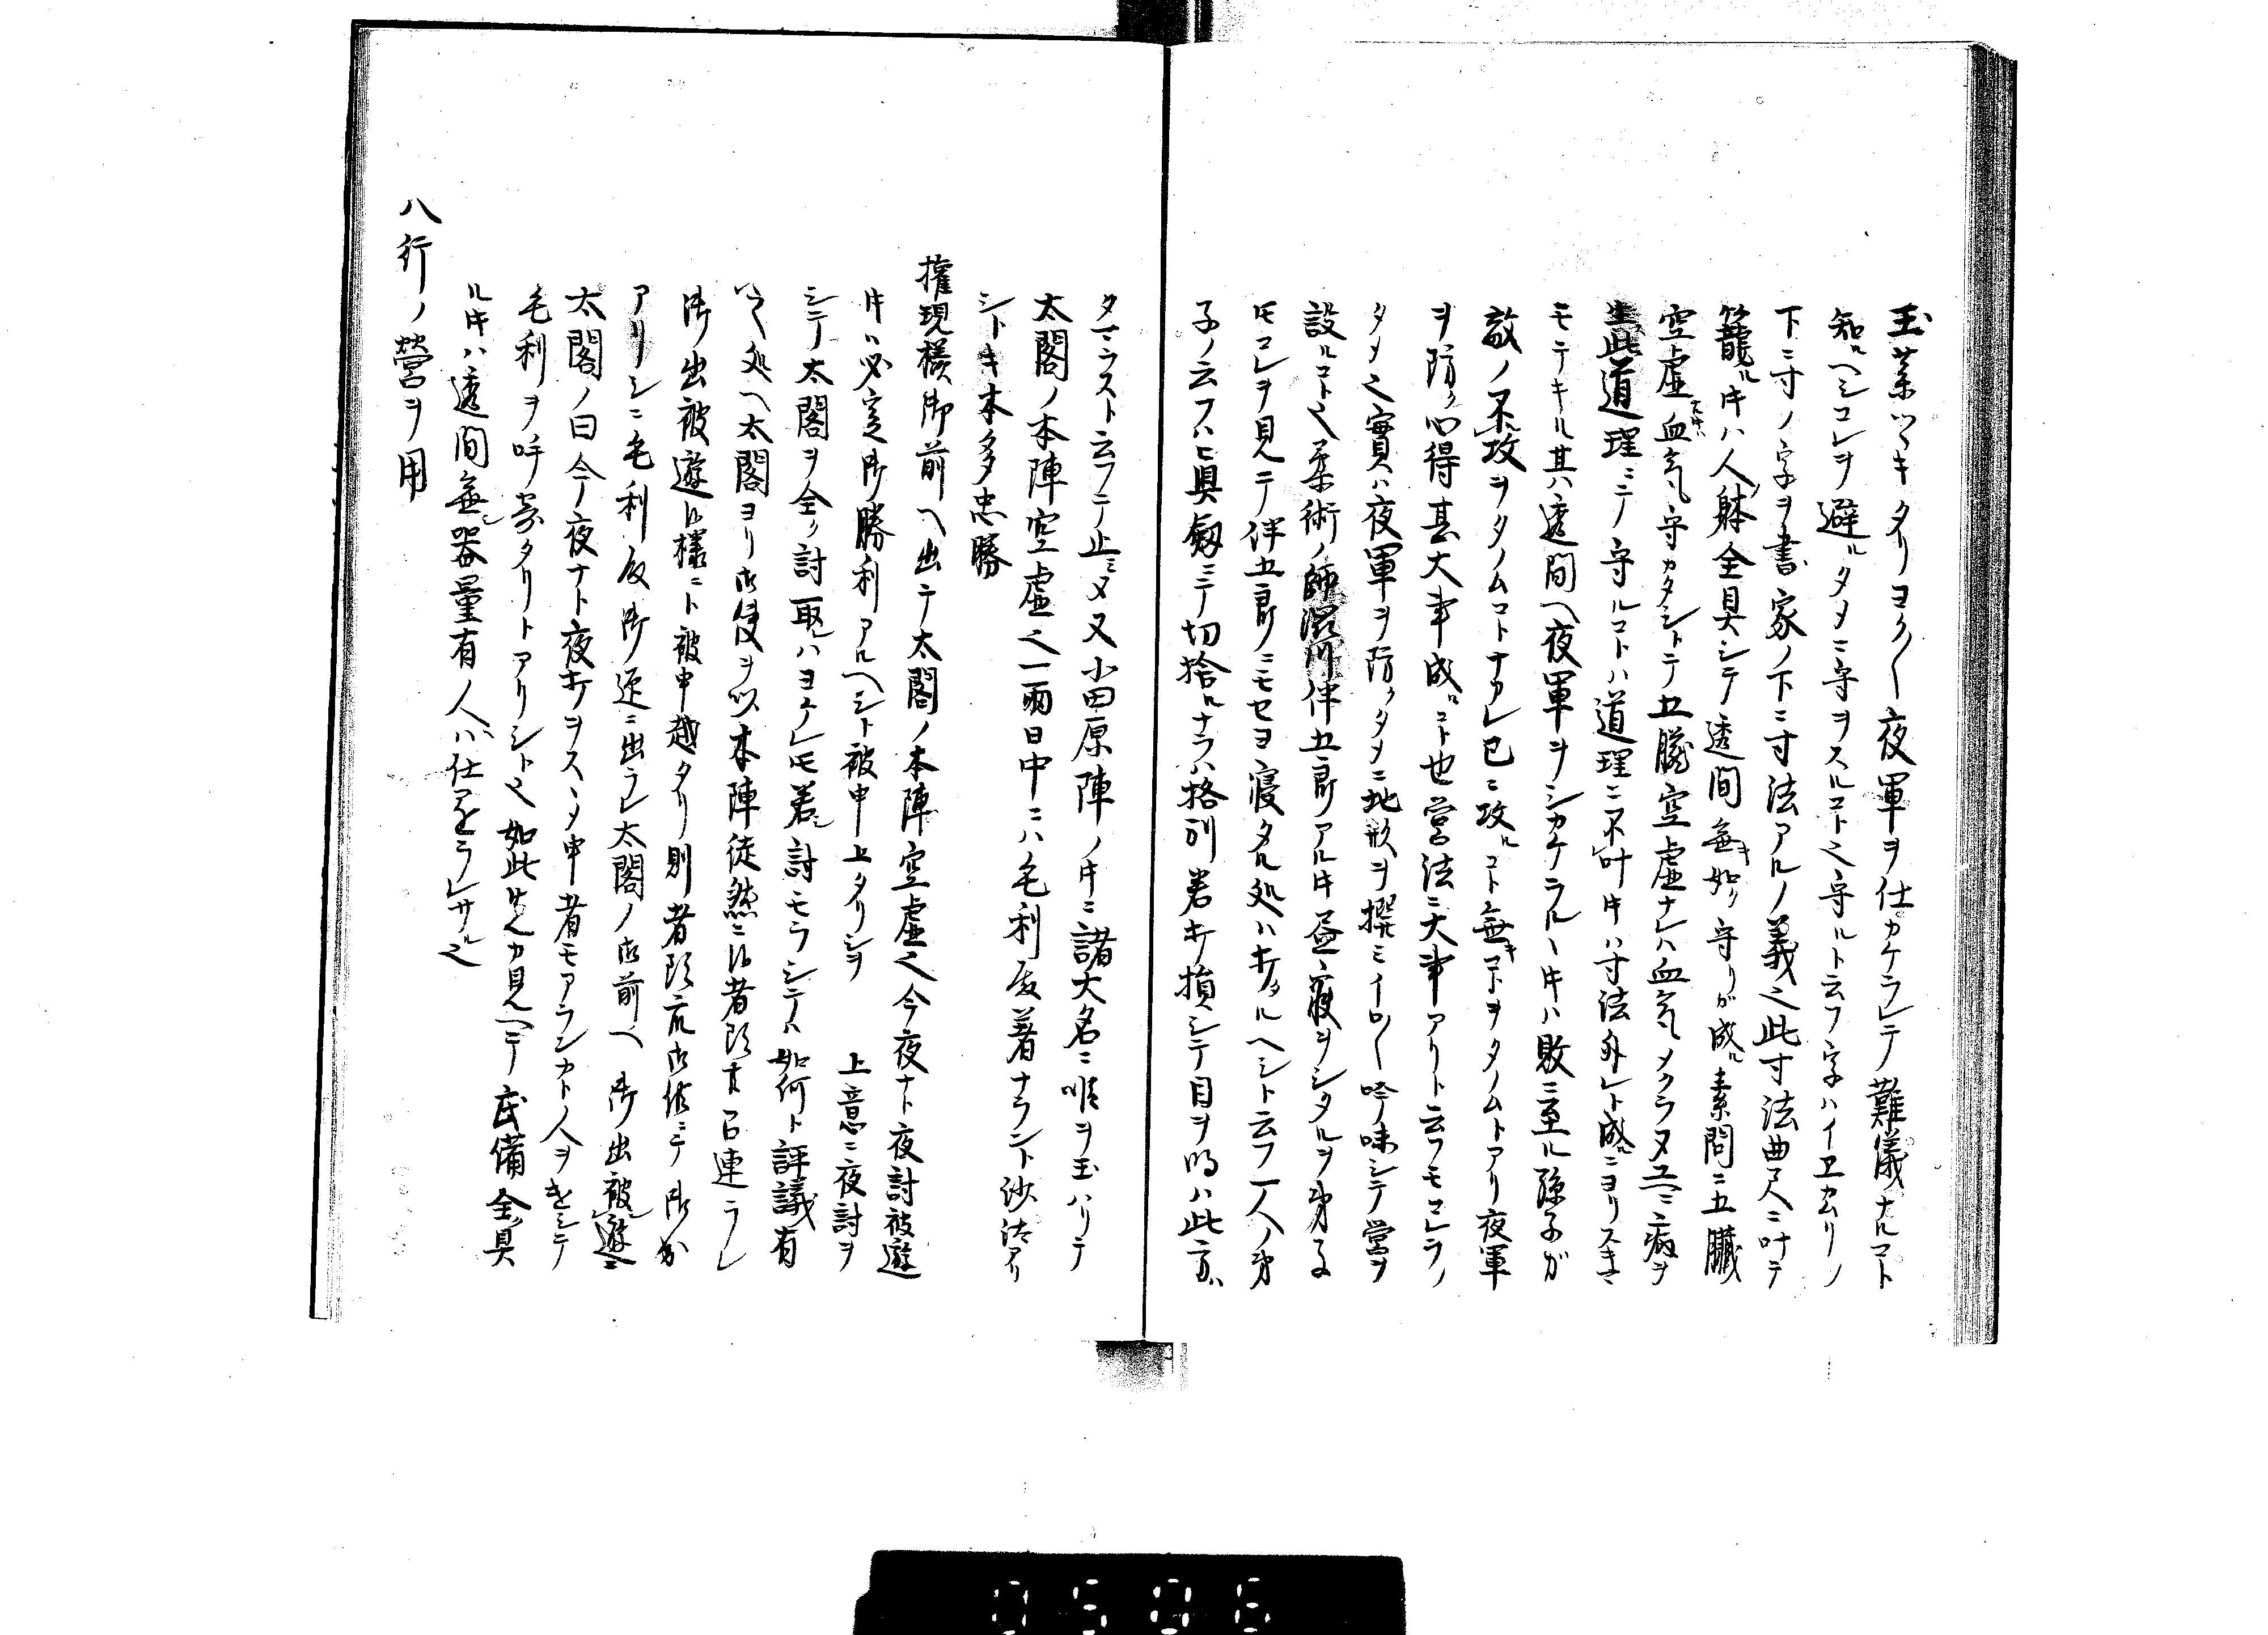 玉薬ツキタリヨク〱夜軍ヲ仕カケラレテ難儀ナルコト
知ルヘシコレヲ避ルタメニ守ヲスルコト也守ルト云フ字ハイエカムリノ
下ニ寸ノ字ヲ書家ノ下ニ寸法アルノ義也此寸法曲尺ニ叶テ
籠ル时ハ人躰全具シテ透間無キ如ク守リガ成ル素問ニ五臓
空虚血気守カタシトテ五臓空虚ナレハ血気メクラヌユヘニ病ヲ
生此道理ニテ守ルコトハ道理ニ不叶时ハ寸法外レト成ニヨリスキマ
モテキル其ハ透間ヘ夜軍ヲシカケラルヽ时ハ敗ニ至ル孫子ガ
敵ノ不攻ヲタノムコトナアレ已ニ攻ルコト無キコトヲタノムトアリ夜軍
ヲ防ク心得甚大事成ルコト也営法ニ大事アリト云フモコレラノ
タメ也實ハ夜軍ヲ防クタメニ地形ヲ撰ミイロ〱吟味シテ営ヲ
設ルコト也柔術ノ師滋川伴五郎アル时昼寝ヲシタルヲ弟子
氏コレヲ見テ伴五郎ニモセヨ寝タル処ハ打タルヘシト云フ一人ノ弟
子ノ云フハ真剱ニテ切捨ルナラハ格別若打損シテ目ヲ明ハ此方ハ
タマラスト云フテ止ミヌ又小田原陣ノ时ニ諸大名ニ暇ヲ玉ハリテ
太閤ノ本陣空虚也一両日中ニハ毛利殿着ナラント沙汰アリ
シトキ本多忠勝
権現様御前ヘ出テ太閤ノ本陣空虚也今夜ナト夜討被遊
时ハ必定御勝利アルヘシト被申上タリシヲ 上意ニ夜討ヲ
シテ太閤ヲ全ク討取ハヨケレ氏若討モラシテハ如何ト評議有
処ヘ太閤ヨリ御使ヲ以本陣徒然ニ候者共召連ラレ
御出被遊候様ニト被申越タリ則者共御供ニテ御出
アリシニ毛利殿御迎ニ出ラレ太閤ノ御前ヘ御出被遊ニ
太閤ノ曰今夜ナト夜打ヲスヽメ申者モアランカト人ヲ
毛利ヲ呼寄タリトアリシト也如此先カ見ヘテ武備全具
ル时ハ透間無器量有人ハ仕ラレサル也
八行ノ營ヲ用